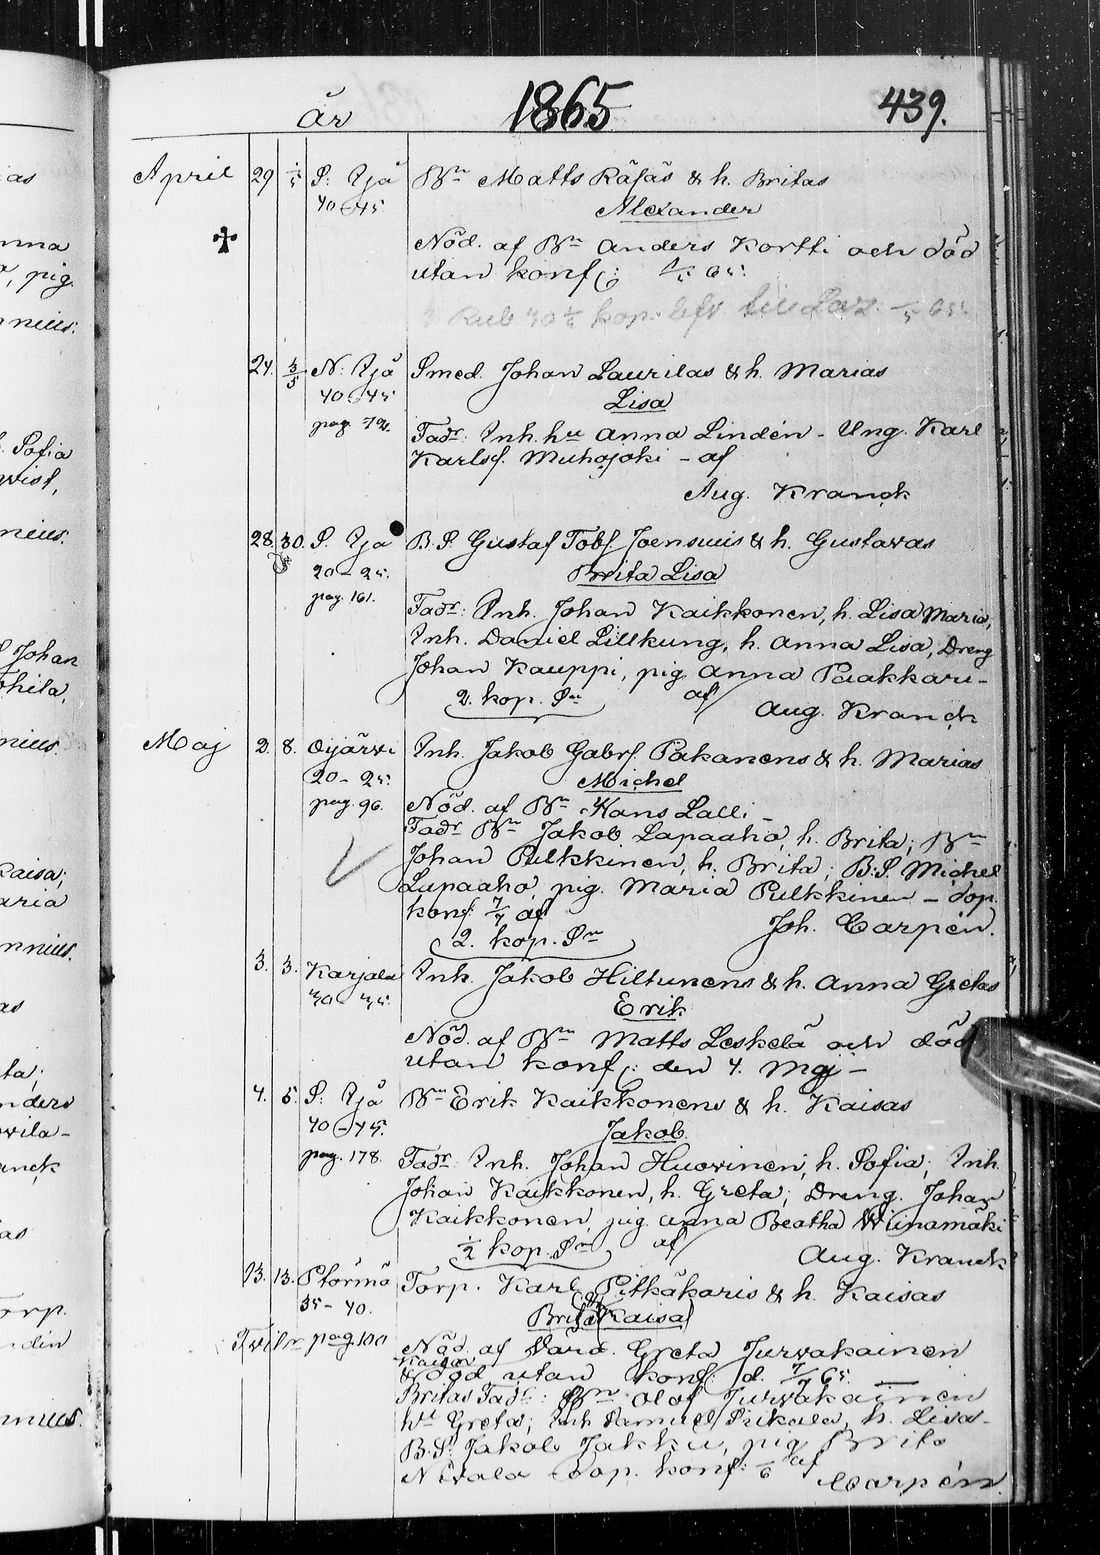 år 1865 439.
April 29 1/5 S: Ijå Bn Matts Räfäs & h. Britas
40-45 Alexander
Nöd. af Bn Anders Kortti och död
utan konf: 1/5 65.
Rub 40 kop. lefv till 1/5 65.
24. 3/5 N: Ijå Smed. Johan Laurilas & h. Marias
40-45 Lisa
pag. Fadr: Inh. hu Anna Lindén - Ung. Karl
Karlss. Muhojoki - af
Aug. Kranck
28. 30. S. Ijå B.S. Gustaf Tobs Joensuus & h. Gustavas
20-25. Brita Lisa
pag. 161. Fadr: Inh. Johan Kaikkonen, h. Lisa Maria,
Inh. Daniel Lillkung, h. Anna Lisa, Dreng
Johan Kauppi, pig. Anna Paakkari -
2. kop. Sr af Aug. Kranck
Maj 2. 8. Oijärvi Inh. Jakob Gabrs. Pakanens & h. Marias
20-25. Michel
pag. 96. Nöd. af Bn Hans Lalli -
Fadr Bn Jakob Lapaaho, h. Brita; Bn
Johan Pulkkinen, h. Brita; B.S. Michel
Lapaaho, pig. Maria Pulkkinen - dop.
konf 7/7 af Joh. Carpén.
2. kop. Sr
3. 3. Karjala Inh. Jakob Hiltunens & h. Anna Gretas
30-35 Erik
Nöd. af Bn Matts Leskelä och död
utan konf: den 4. Maj -
4. 5. S. Ijå Bn Erik Kaikkonens & h. Kaisas
40-45. Jakob
pag. 178. Fadr: Inh. Johan Huovinen, h. Sofia; Inh.
Johan Kaikkonen, h. Greta; Dreng. Johan
Kaikkonen, pig. Anna Beatha Wiinamäki
1/2 kop. Sr af Aug. Kranck
13. 13. Ptörmä Torp. Karl Pitkäkaris & h. Kaisas
35-40. Brita (Kaisa)
Tvilr pag. 100 Nöd. af Greta Jurvakainen
Kaisa
& död utan konf: d. 7/7 65
Britas Fadr: Bn Olof Jurvakainen
hu Greta; Inh Samuel h. Lisa -
B.S. Jakob Jakku, pig Brita
Nivala dop. konf: af Carpén